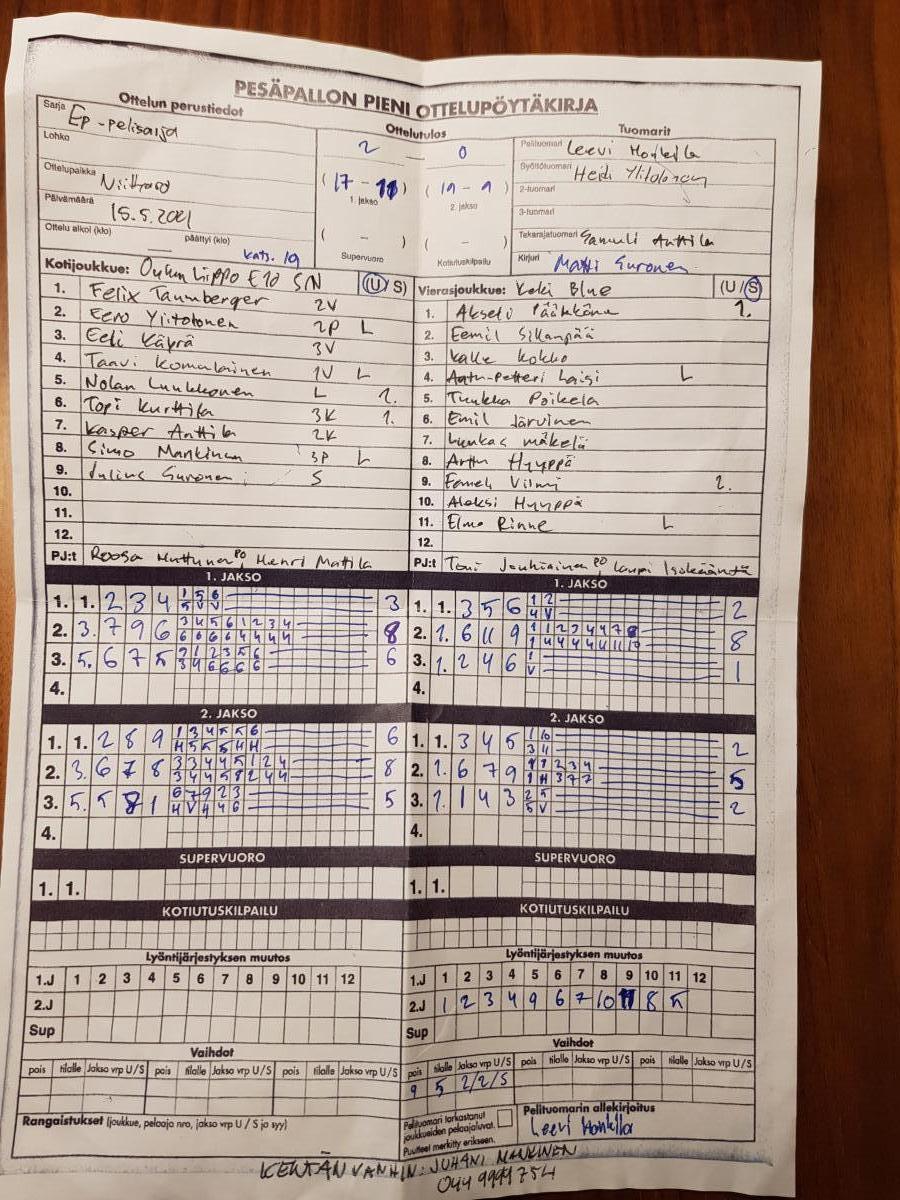 PESÄPALLON PIENI OTTELUPÖYTÄKIRJA
Ottelun perustiedot
Sarja Ep-pelisarja
Lohko
Ottelupaikka
Päivämäärä 15.5.2021
Ottelu alkoi (klo) päättyi (klo)
kats. 19
Ottelutulos
2 – 0
(17 – 11) (19 – 9)
1. jakso 2. jakso
( – ) ( – )
Supervuoro Kotiutuskilpailu
Tuomarit
Pelituomari Leevi Honkila
Syöttötuomari Heidi Ylitolonen
2-tuomari
3-tuomari
Takarajatuomari Samuli Anttila
Kirjuri Matti Suronen
Kotijoukkue: Oulun Lippo E10 SN (U/S)
1. Felix Taumberger 2V
2. Eero Ylitolonen 2P L
3. Eeli Käyrä 3V
4. Taavi Komulainen 1V L
5. Nolan Luukkonen L 2.
6. Topi Kurttila 3K 1.
7. Kasper Anttila 2K
8. Simo Mankinen 3P L
9. Julius Suronen S
10.
11.
12.
PJ:t Roosa Huttunen PO, Henri Mattila
Vierasjoukkue: KeKi Blue (U/S)
1. Akseli Pääkkönen 1.
2. Eemil Sikanpää
3. Kalle Kokko
4. Aatu-Petteri Laisi L
5. Tuukka Poikela
6. Emil Järvinen
7. Luukas Mäkelä
8. Arttu Hyyppä
9. Eemeli Vilmi 2.
10. Aleksi Hyyppä
11. Elmo Rinne L
12.
PJ:t Toni Jauhiainen PO, Lauri Isokääntä
1. JAKSO
1. 1. 2 3 4 1 5 6 3
5 V V
2. 3. 7 9 6 3 4 5 6 1 2 3 4 8
6 6 6 6 4 4 4 4
3. 5. 6 7 5 2 1 2 3 5 6 6
3 4 6 6 6 6
4.
1. JAKSO
1. 1. 3 5 6 1 2 2
4 V
2. 1. 6 11 9 1 1 2 3 4 4 7 8 8
1 4 4 4 4 11 11 10
3. 1. 2 4 6 1 1
V
4.
2. JAKSO
1. 1. 2 8 9 1 3 4 5 5 6 6
H 5 5 5 H H
2. 3. 6 7 8 3 3 4 4 5 1 2 4 8
3 4 4 5 8 2 4 4
3. 5. 5 8 1 6 7 9 2 3 5
H V H 4 6
4.
2. JAKSO
1. 1. 3 4 5 1 10 2
3 11
2. 1. 6 7 9 1 1 2 3 4 5
1 H 3 7 7
3. 1. 1 4 3 2 5 2
5 V
4.
SUPERVUORO
1. 1.
SUPERVUORO
1. 1.
KOTIUTUSKILPAILU
KOTIUTUSKILPAILU
Lyöntijärjestyksen muutos
1.J 1 2 3 4 5 6 7 8 9 10 11 12
2.J
Sup
Lyöntijärjestyksen muutos
1.J 1 2 3 4 5 6 7 8 9 10 11 12
2.J 1 2 3 4 9 6 7 10 11 8 5
Sup
Vaihdot
pois tilalle Jakso vrp U/S pois tilalle Jakso vrp U/S pois tilalle Jakso vrp U/S
Vaihdot
pois tilalle Jakso vrp U/S pois tilalle Jakso vrp U/S pois tilalle Jakso vrp U/S
9 5 2/2/S
Rangaistukset (joukkue, pelaaja nro, jakso vrp U / S ja syy)
Pelituomari tarkastanut
joukkueiden pelaajaluvat.
Puutteet merkitty erikseen.
Pelituomarin allekirjoitus
Leevi Honkila
KENTÄN VANHIN: JUHANI MANKINEN
044 9999 754